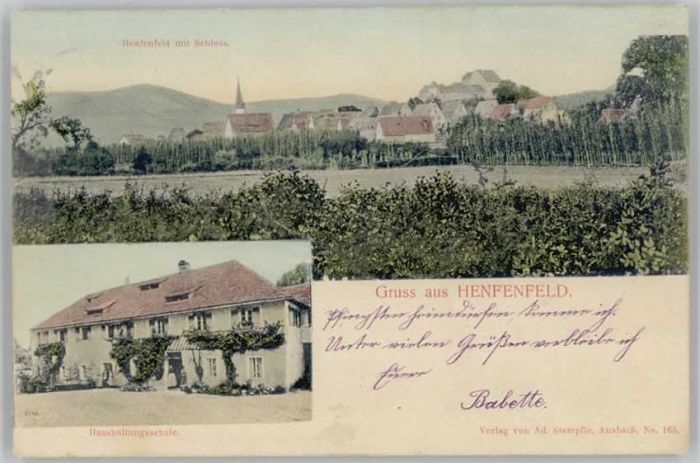 Henfenfeld mit Schloss.
Gruss aus HENFENFELD.
Pfingsten heimdürfen komme ich.
Unter vielen Grüßen verbleibe ich
Eure
Babette.
Haushaltungsschule.
Verlag von Ad. Stempfle, Ansbach, No. 163.